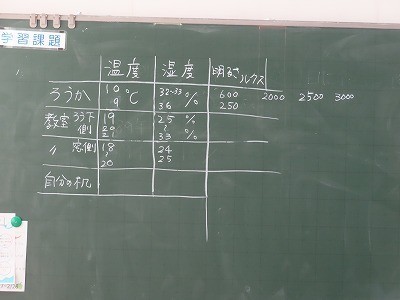 学習課題
温度 湿度 明るさ ルクス
ろうか 10 ℃ 32~33 % 600 2000 2500 3000
9 36 250
教室 ろう下側 19 25 %
20 21 33 %
〃 窓側 18 24
20 25
自分の机